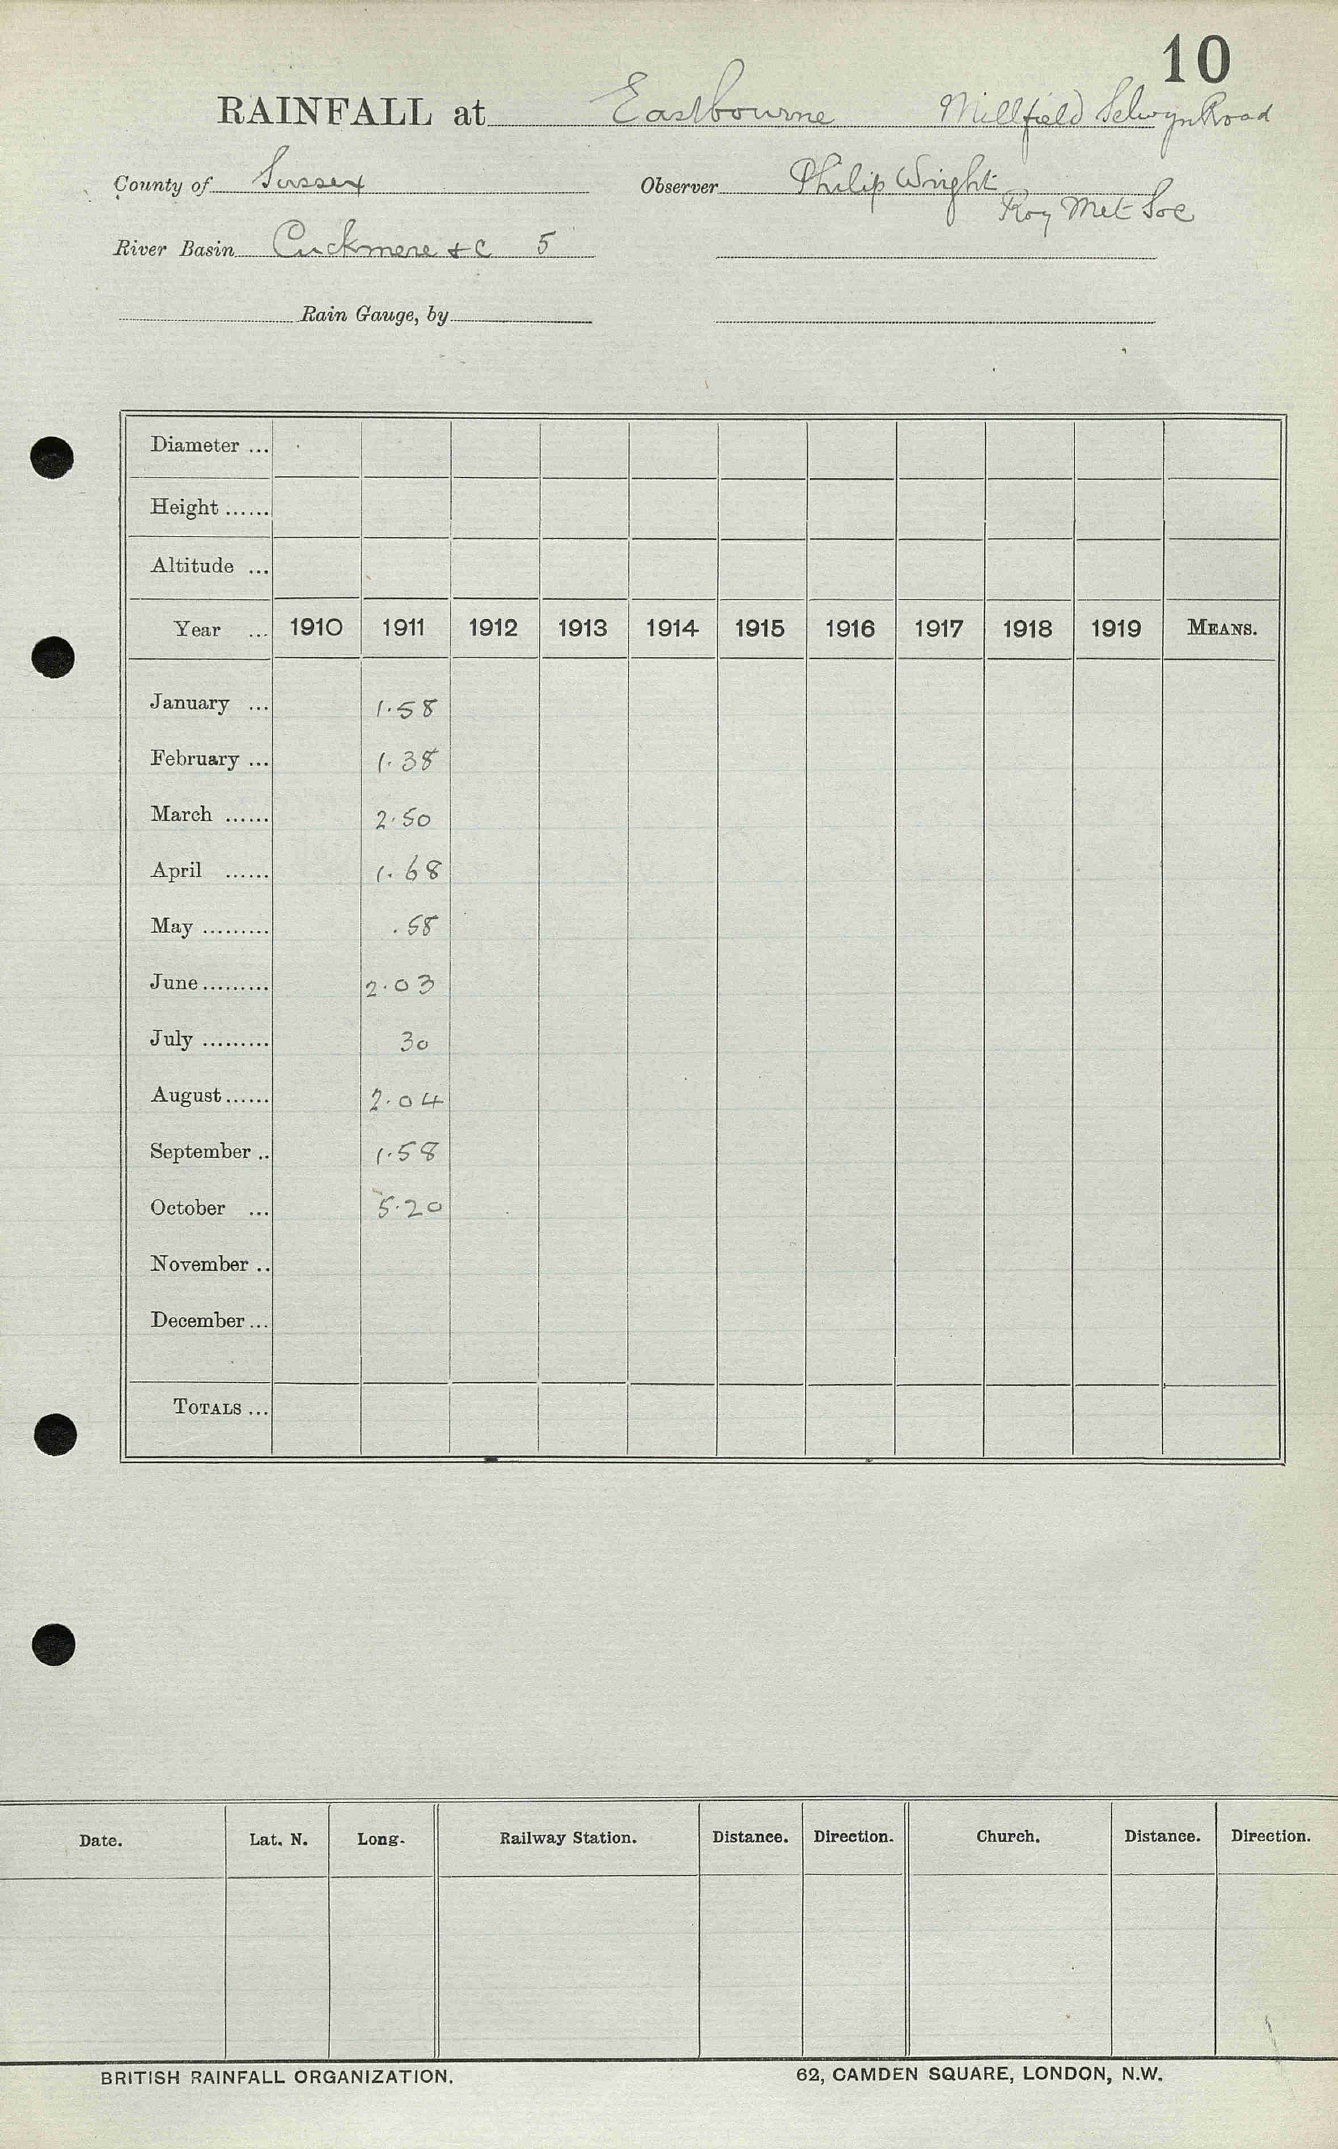 10
RAINFALL at Eastbourne Millfield Selwyn Road
County of Sussex Observer Philip Wright
Roy Met Soc
River Basin Cuckmere &c 5
Rain Gauge, by
Diameter ...
Height ......
Altitude ...
Year ... 1910 1911 1912 1913 1914 1915 1916 1917 1918 1919 MEANS.
January ... 1.58
February ... 1.38
March ...... 2.50
April ...... 1.68
May ......... .58
June ......... 2.03
July ......... 30
August ...... 2.04
September .. 1.58
October ... 5.20
November ..
December ...
TOTALS ...
Date. Lat. N. Long. Railway Station. Distance. Direction. Church. Distance. Direction.
BRITISH RAINFALL ORGANIZATION. 62, CAMDEN SQUARE, LONDON, N.W.